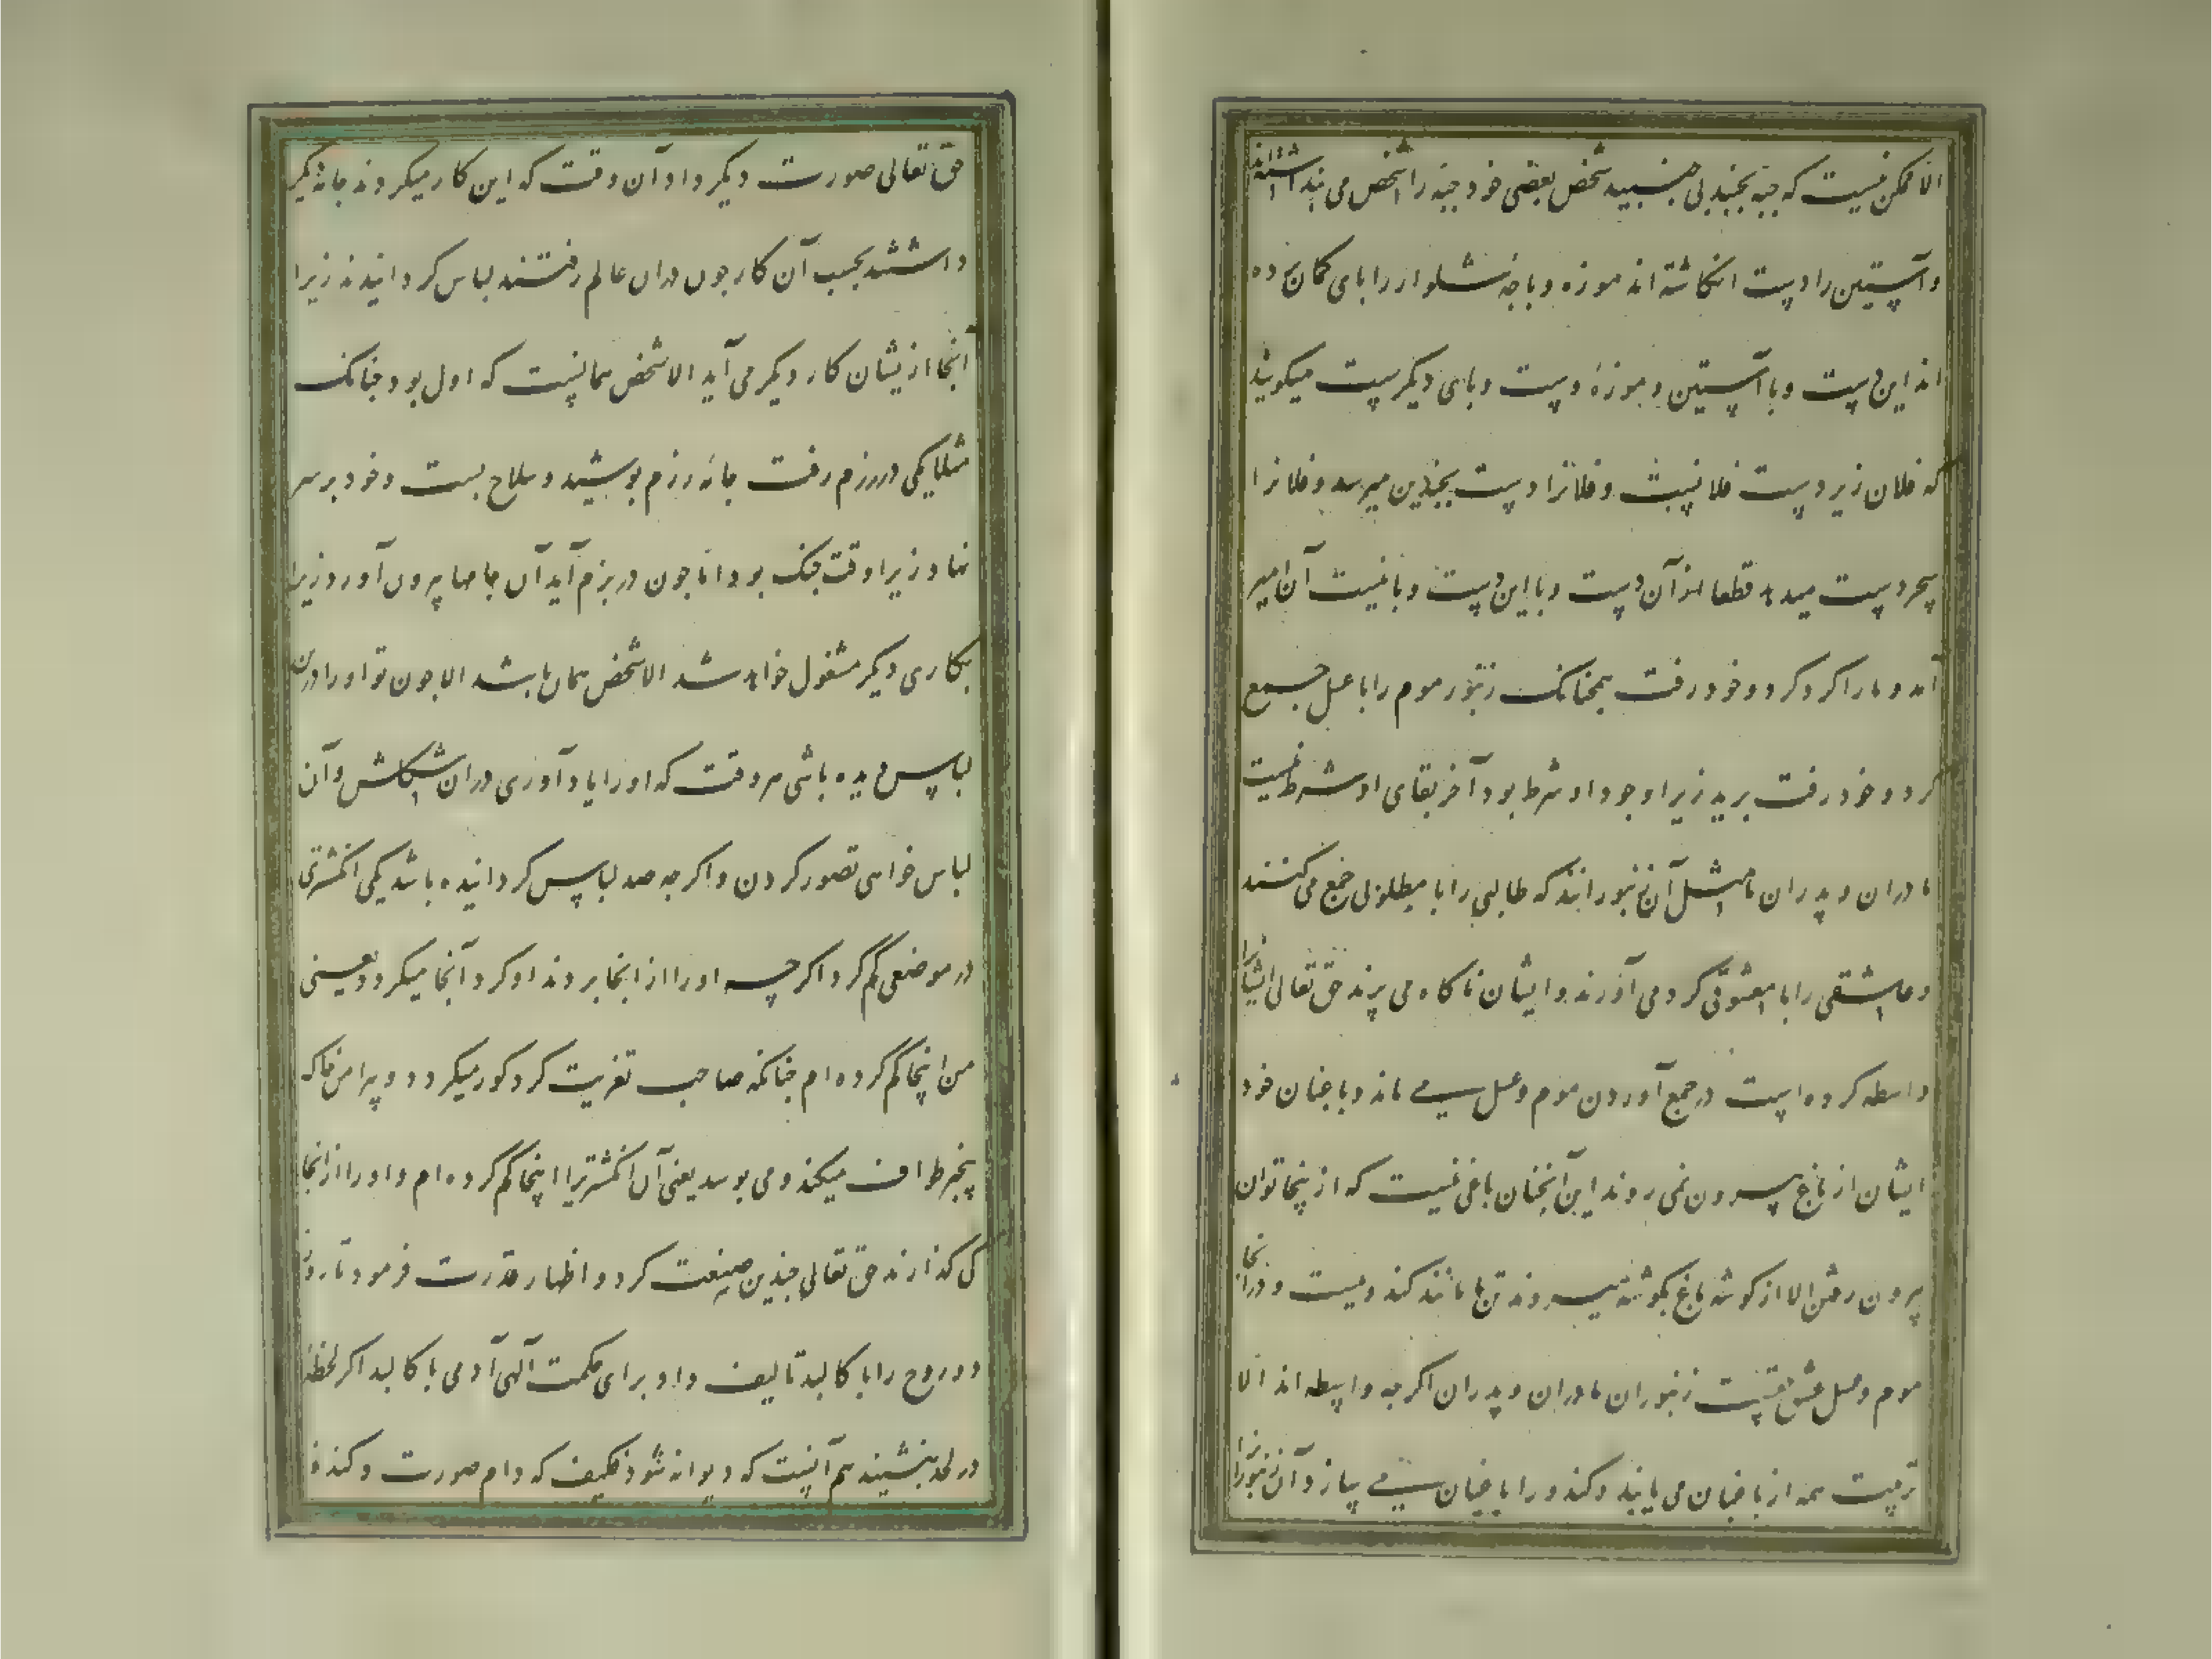 الا ممکن نیست که جبه بجنبد بی جنبیدن شخص بعضی خود جبه را شخص می پنداشته اند
و آستین را دست انگاشته اند موزه و باجه شلوار را بای کمان برده
اند این دست و با آستین و موزهٔ دست و بای دیگرست میکویند
که فلان زیر دست فلانیست و فلانرا دست بجندین میرسد و فلانرا
سخن دست میدهد قطعا از آن دست و با این دست و با نیست آن امیر
آمد و ما را کرد کرد و خود رفت همجنانک زنبور موم را با عسل جمع
کرد و خود رفت برید زیرا وجود او شرط بود آخر بقای او شرط نیست
مادران و پدران ما مثل آن زنبورانند که طالبی را با مطلوبی جمع می کنند
و عاشقی را با معشوقی کرد می آورند و ایشان ناکاه می پرند حق تعالی ایشانرا
واسطه کرده است در جمع آوردن موم و عسل می ماند و باغبان خود
ایشان از باغ بیرون نمی روند این آنجنان باغی نیست که از ینجا توان
بیرون رفتن الا از کوشه باغ بکوشه میروند تن ما مانند کندویست و در آنجا
موم و عسل عشق حقست زنبوران مادران و پدران اکرجه واسطه اند الا
تربیت همه از باغبان می یابند و کندو را باغبان می سازد و آن زنبورانرا
حق تعالی صورت دیکر داد آن وقت که این کار میکردند جامهٔ دیکر
داشتند بحسب آن کار جون دران عالم رفتند لباس کردانیدند زیرا
آنجا ازیشان کار دیکر می آید الا شخص همانیست که اول بود جنانک
مثلا یکی در رزم رفت جامهٔ رزم بوشید و سلاح بست و خود بر سر
نهاد زیرا وقت جنک بود اما جون در بزم آید آن جامها بیرون آورد زیرا
بکاری دیکر مشغول خواهد شد الا شخص همان باشد الا جون تو او را در ان
لباس دیده باشی هر وقت که او را یاد آوری دران شکلش و آن
لباس خواهی تصور کردن و اکرجه صد لباس کردانیده باشد یکی انکشتری
در موضعی کم کرد اکرچه او را از انجا بردند او کرد آنجا میکردد یعنی
من اینجا کم کرده ام جنانکه صاحب تعزیت کرد کور میکردد و پیرامن خاک
بیخبر طواف میکند و می بوسد یعنی آن انکشتریرا اینجا کم کرده ام و او را از انجا
کی کذارند حق تعالی جندین صنعت کرد و اظهار قدرت فرمود تا روزی
دو روح را با کالبد تالیف داد برای حکمت آلهی آدمی با کالبد اکر لحظهٔ
در لحد بنشیند بیم آنست که دیوانه شود فکیف که از دام صورت و کندهٔ